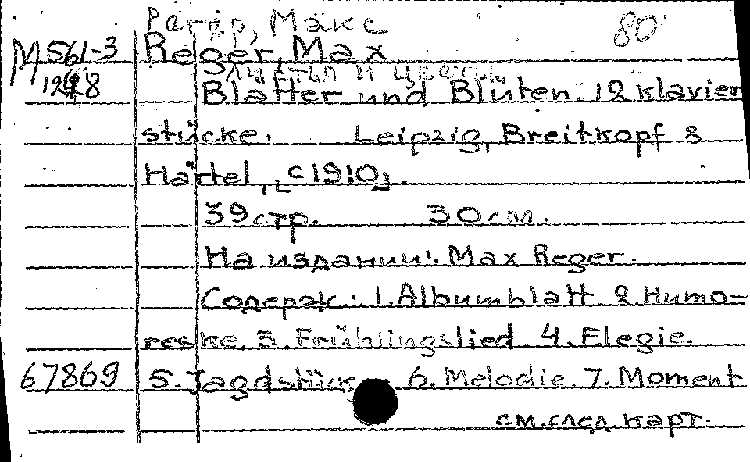 Рагер, Макс 80
М 561-3 Reger, Max
Листья и цветы
1948 Blätter und Blüten. 12 klavier
stücke. Leipzig, Breitkopf &
Härtel, [c 1910].
39 стр. 30 см.
На издании: Max Reger.
Содерж.: 1. Albumblatt 2. Humo-
reske. 3. Frühlingslied. 4. Elegie.
67869 5. Jagdstück 6. Melodie. 7. Moment
см. след. карт.